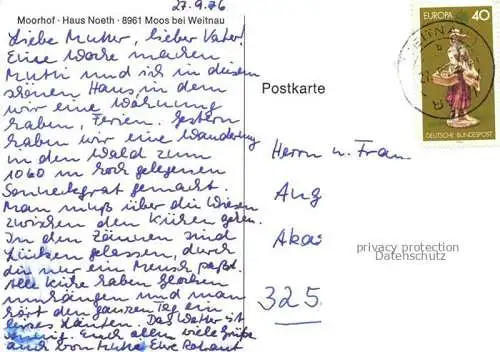 27.9.76
Moorhof · Haus Noeth · 8961 Moos bei Weitnau
Liebe Mutter, lieber Vater!
Eine Woche machen
Mutti und ich in diesem
schönen Haus, in dem
wir eine Wohnung
haben, Ferien. Gestern
haben wir eine Wanderung
in den Wald zum
1060 m hoch gelegenen
Sonneckgrat gemacht.
Man muß über die Wiesen
zwischen den Kühen gehen.
In den Zäunen sind
Lücken gelassen, durch
die nur ein Mensch paßt.
Alle Kühe haben Glocken
umhängen und man
hört den ganzen Tag ein
leises Läuten. Das Wetter ist
sonnig. Euch allen viele Grüße
auch von Mutti Eure
EUROPA 40
DEUTSCHE BUNDESPOST
WEITNAU
Postkarte
Herrn u. Frau
Aug
Akas
privacy protection
Datenschutz
325